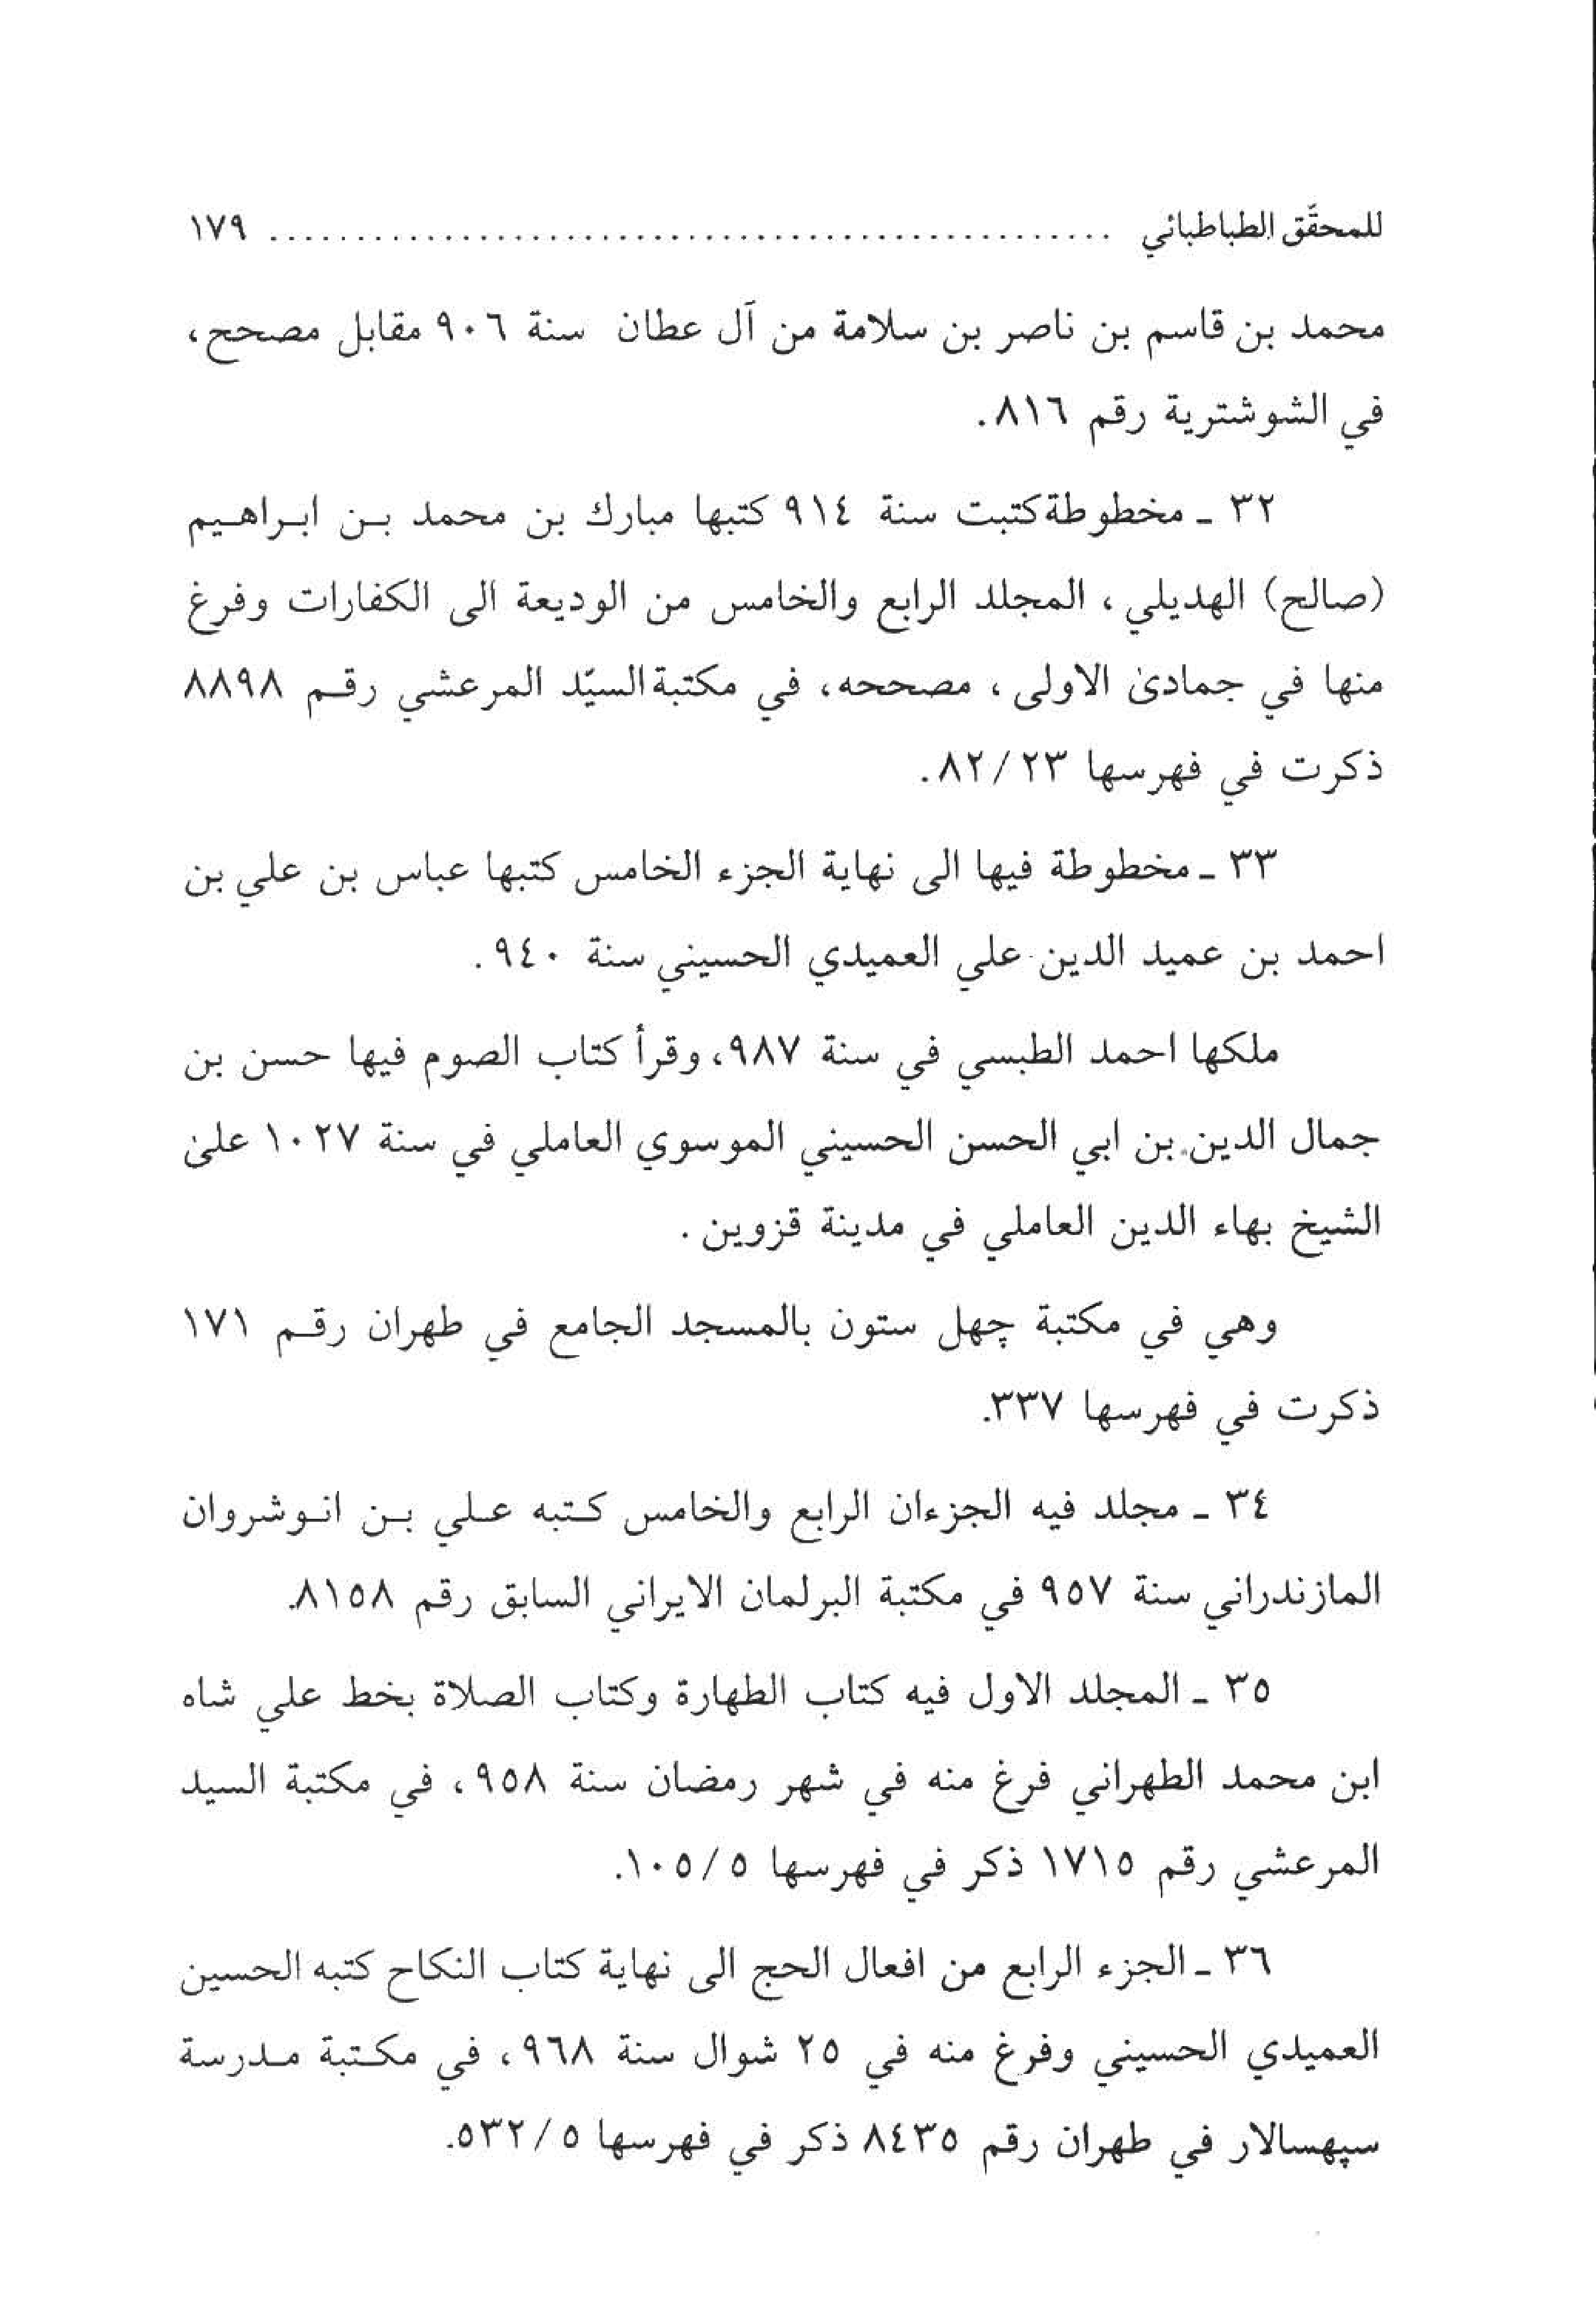 للمحقّق الطباطبائي ................................................. ١٧٩
محمد بن قاسم بن ناصر بن سلامة من آل عطان سنة ٩٠٦ مقابل مصحح،
في الشوشترية رقم ٨١٦.
٣٢ ـ مخطوطة كتبت سنة ٩١٤ كتبها مبارك بن محمد بن ابراهيم
(صالح) الهديلي، المجلد الرابع والخامس من الوديعة الى الكفارات وفرغ
منها في جمادىٰ الاولى، مصححه، في مكتبة السيّد المرعشي رقم ٨٨٩٨
ذكرت في فهرسها ٢٣/ ٨٢.
٣٣ ـ مخطوطة فيها الى نهاية الجزء الخامس كتبها عباس بن علي بن
احمد بن عميد الدين علي العميدي الحسيني سنة ٩٤٠.
ملكها احمد الطبسي في سنة ٩٨٧، وقرأ كتاب الصوم فيها حسن بن
جمال الدين بن ابي الحسن الحسيني الموسوي العاملي في سنة ١٠٢٧ علىٰ
الشيخ بهاء الدين العاملي في مدينة قزوين.
وهي في مكتبة چهل ستون بالمسجد الجامع في طهران رقم ١٧١
ذكرت في فهرسها ٣٣٧.
٣٤ ـ مجلد فيه الجزءان الرابع والخامس كتبه علي بن انوشروان
المازندراني سنة ٩٥٧ في مكتبة البرلمان الايراني السابق رقم ٨١٥٨.
٣٥ ـ المجلد الاول فيه كتاب الطهارة وكتاب الصلاة بخط علي شاه
ابن محمد الطهراني فرغ منه في شهر رمضان سنة ٩٥٨، في مكتبة السيد
المرعشي رقم ١٧١٥ ذكر في فهرسها ٥/ ١٠٥.
٣٦ ـ الجزء الرابع من افعال الحج الى نهاية كتاب النكاح كتبه الحسين
العميدي الحسيني وفرغ منه في ٢٥ شوال سنة ٩٦٨، في مكتبة مدرسة
سپهسالار في طهران رقم ٨٤٣٥ ذكر في فهرسها ٥/ ٥٣٢.